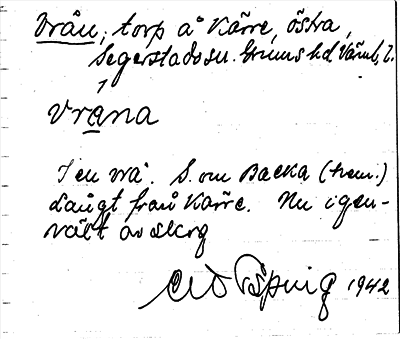 Vrån, torp å Kärre, östra,
Segerstads sn. Grums hd Värml. l.
vrana
I en vrå. S. om Backa (hem.)
Långt från Kärre. Nu igen-
växt av skog
1942